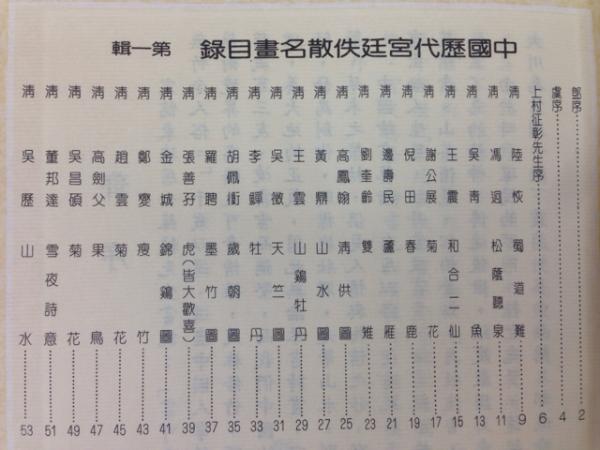 中國歷代宮廷佚散名畫目錄 第一輯
鄧序 2
虞序 4
上村征彰先生序 6
淸 陸恢 蜀道難 9
淸 馮迥 松蔭聽泉 11
淸 吳青 魚 13
淸 王震 和合二仙 15
淸 謝公展 菊花 17
淸 倪田 春鹿 19
淸 邊壽民 蘆雁 21
淸 劉奎齡 雙雉 23
淸 高鳳翰 淸供圖 25
淸 黃鼎 山水圖 27
淸 王雲 山鷄牡丹 29
淸 吳徵 天竺圖 31
淸 李鱓 牡丹 33
淸 胡佩衡 歲朝圖 35
淸 羅聘 墨竹圖 37
淸 張善孖 虎(皆大歡喜) 39
淸 金城 錦鷄圖 41
淸 鄭燮 瘦竹 43
淸 趙雲 菊花 45
淸 高劍父 果鳥 47
淸 吳昌碩 菊花 49
淸 董邦達 雪夜詩意 51
淸 吳歷 山水 53